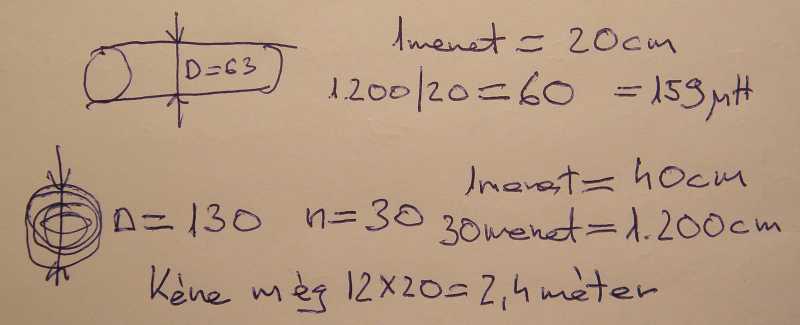 1menet = 20cm
D=63
1.200/20=60 =159μH
1menet = 40cm
D=130 n=30 30menet=1.200cm
Kéne még 12x20=2,4méter